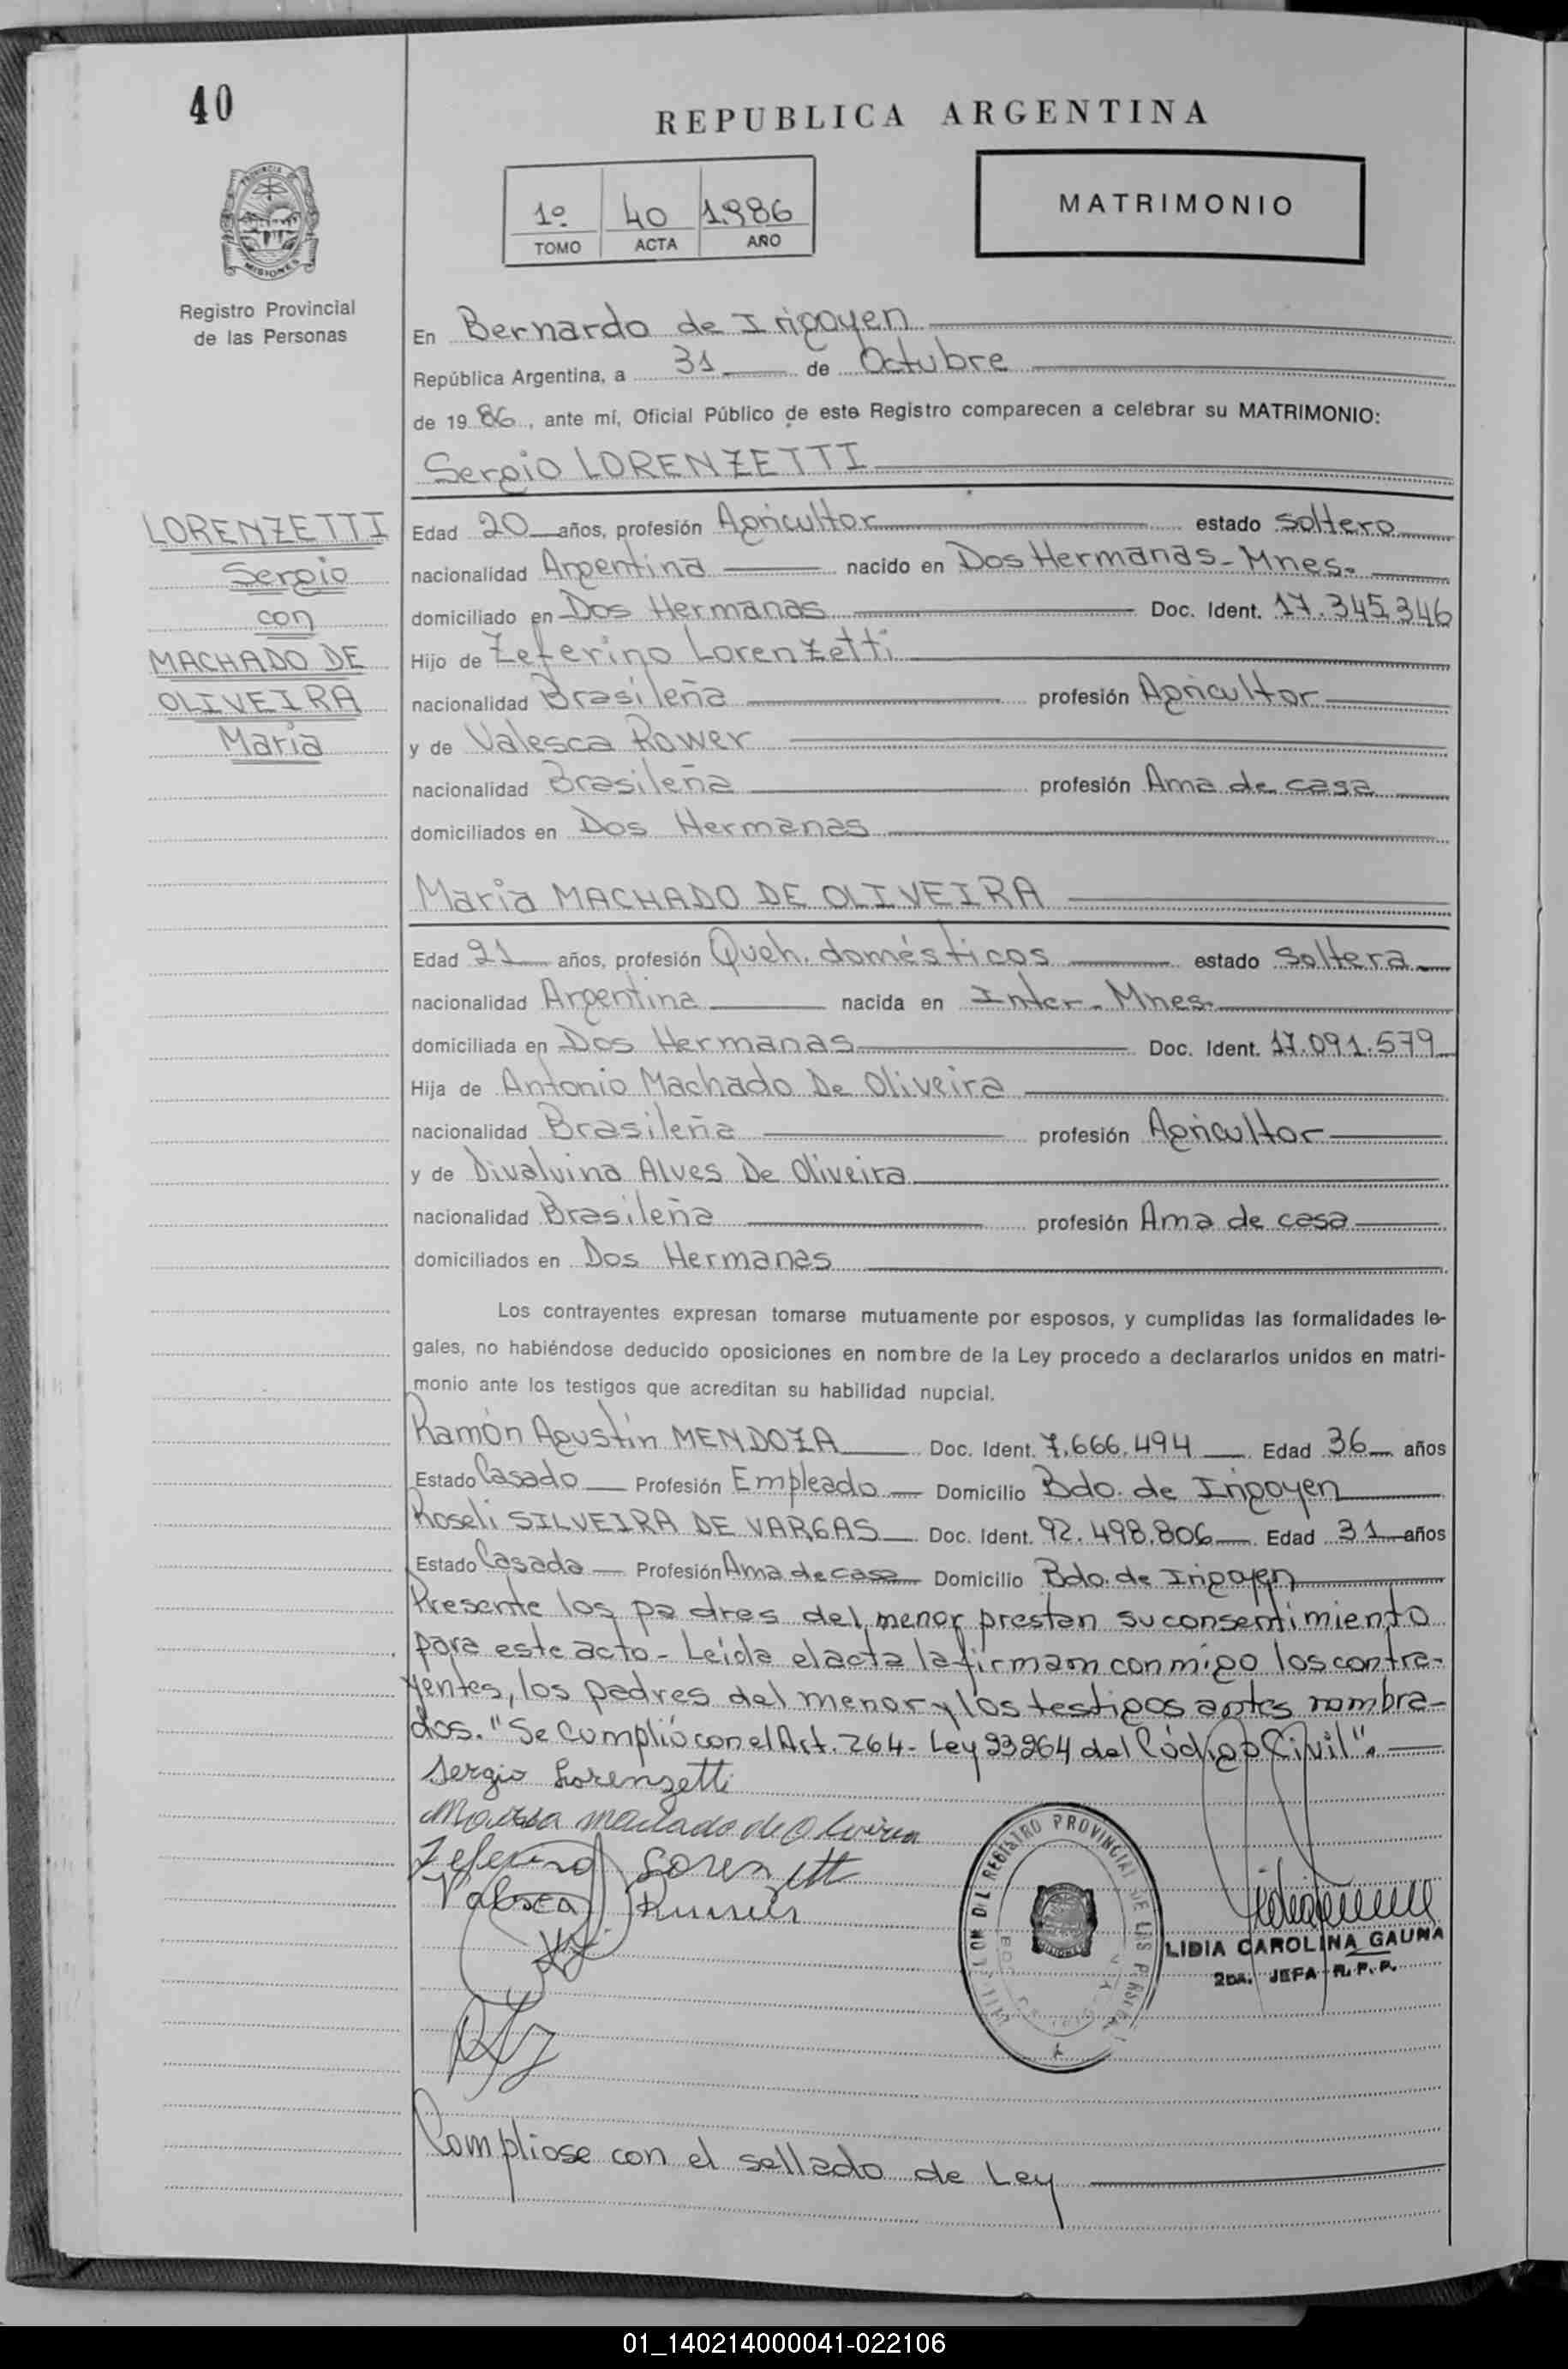 40
REPUBLICA ARGENTINA
PROVINCIA
MISIONES
1º 40 1.986
TOMO ACTA AÑO
MATRIMONIO
Registro Provincial
de las Personas
En Bernardo de Irigoyen
República Argentina, a 31 de Octubre
de 19 86, ante mí, Oficial Público de este Registro comparecen a celebrar su MATRIMONIO:
Sergio LORENZETTI
LORENZETTI
Sergio
con
MACHADO DE
OLIVEIRA
Maria
Edad 20 años, profesión Agricultor estado soltero
nacionalidad Argentina nacido en Dos Hermanas - Mnes.
domiciliado en Dos Hermanas Doc. Ident. 17.345.346
Hijo de Zeferino Lorenzetti
nacionalidad Brasileña profesión Agricultor
y de Valesca Rower
nacionalidad Brasileña profesión Ama de casa
domiciliados en Dos Hermanas
Maria MACHADO DE OLIVEIRA
Edad 21 años, profesión Queh. domésticos estado Soltera
nacionalidad Argentina nacida en Inter - Mnes.
domiciliada en Dos Hermanas Doc. Ident. 17.091.579
Hija de Antonio Machado De Oliveira
nacionalidad Brasileña profesión Agricultor
y de Divalvina Alves De Oliveira
nacionalidad Brasileña profesión Ama de casa
domiciliados en Dos Hermanas
Los contrayentes expresan tomarse mutuamente por esposos, y cumplidas las formalidades le-
gales, no habiéndose deducido oposiciones en nombre de la Ley procedo a declararlos unidos en matri-
monio ante los testigos que acreditan su habilidad nupcial.
Ramón Agustín MENDOZA Doc. Ident. 7.666.494 Edad 36 años
Estado Casado Profesión Empleado Domicilio Bdo. de Irigoyen
Roseli SILVEIRA DE VARGAS Doc. Ident. 92.498.806 Edad 31 años
Estado Casada Profesión Ama de casa Domicilio Bdo. de Irigoyen
Presente los padres del menor prestan su consentimiento
para este acto - Leída el acta la firmam conmigo los contra-
yentes, los padres del menor y los testigos antes nombra-
dos. "Se Cumplió con el Art. 264 - Ley 23264 del Código Civil".
Sergio Lorenzetti
machado de Oliveira
Zeferino Lorenzetti
Valesca
REGISTRO PROVINCIAL DE LAS PERSONAS
LIDIA CAROLINA GAUNA
2DA. JEFA R. P. P.
Compliose con el sellado de Ley
01_140214000041-022106